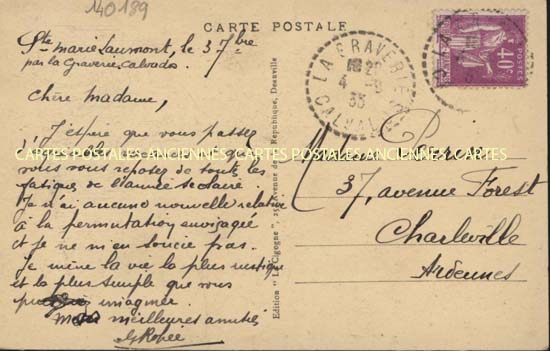 140189
CARTE POSTALE
Ste Marie Laumont, le 3 7bre
par la Graverie, Calvados.
Chère Madame,
J'espère que vous passez
CARTES POSTALES ANCIENNES CARTES POSTALES ANCIENNES CARTES
vous vous reposez de toute les
fatigues de l'année scolaire.
Je n'ai aucune nouvelle relative
à la permutation envisagée
et je ne m'en soucie pas.
Je mène la vie la plus rustique
et la plus simple que vous
imaginer.
meilleures amitiés
Edition "La Cigogne", Avenue de la République, Deauville
LA GRAVERIE
4 -9
35
CALVADOS
POSTES
40c
Madame
37, avenue Forest
Charleville
Ardennes